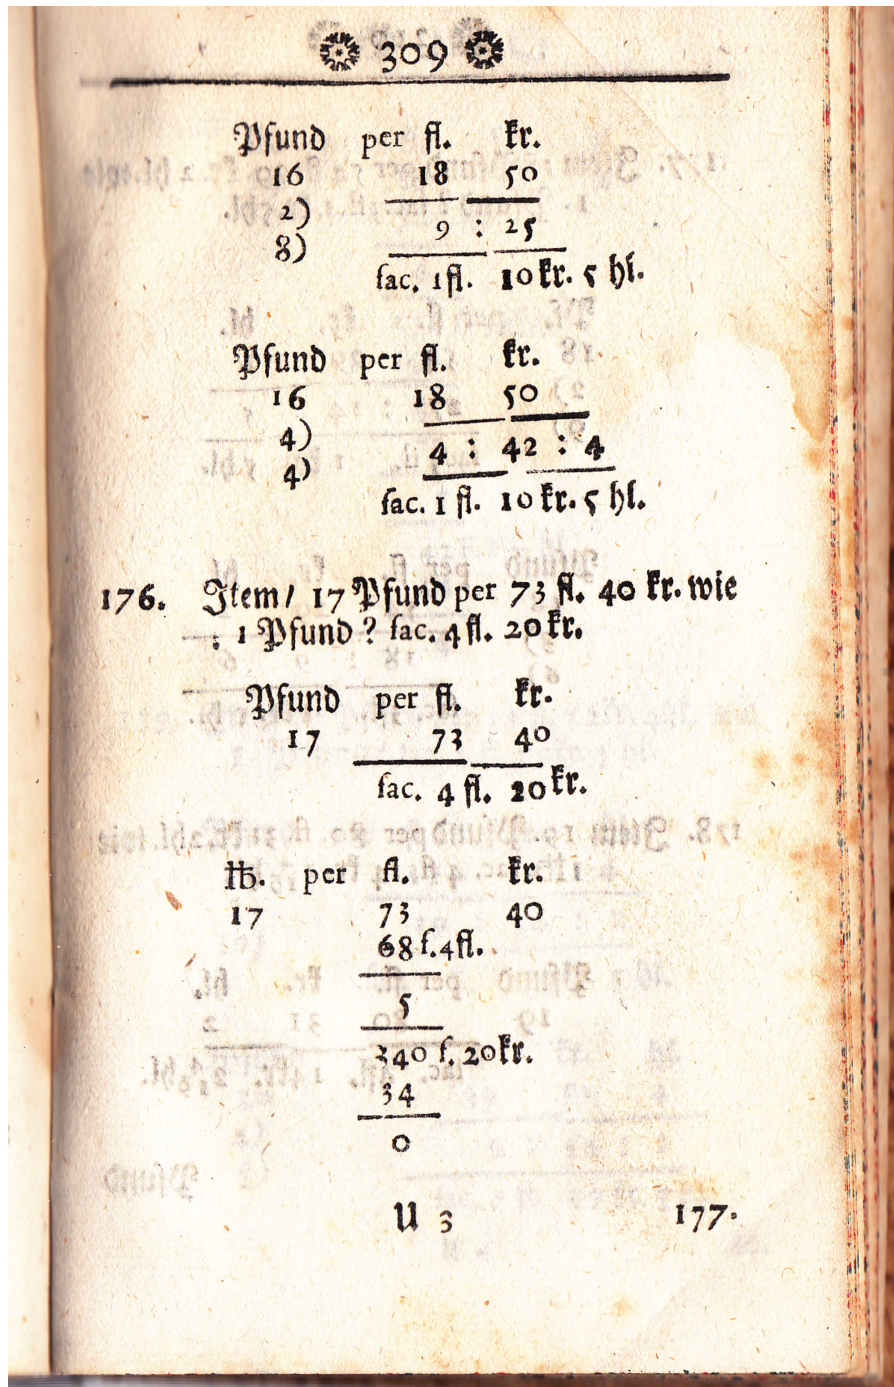 309
Pfund per fl. kr.
16 18 50
2)
9 : 25
8)
fac. 1 fl. 10 kr. 5 hl.
Pfund per fl. kr.
16 18 50
4)
4 : 42 : 4
4)
fac. 1 fl. 10 kr. 5 hl.
176. Item / 17 Pfund per 73 fl. 40 kr. wie
1 Pfund ? fac. 4 fl. 20 kr.
Pfund per fl. kr.
17 73 40
fac. 4 fl. 20 kr.
℔. per fl. kr.
17 73 40
68 f. 4 fl.
5
340 f. 20 kr.
34
0
U 3 177.